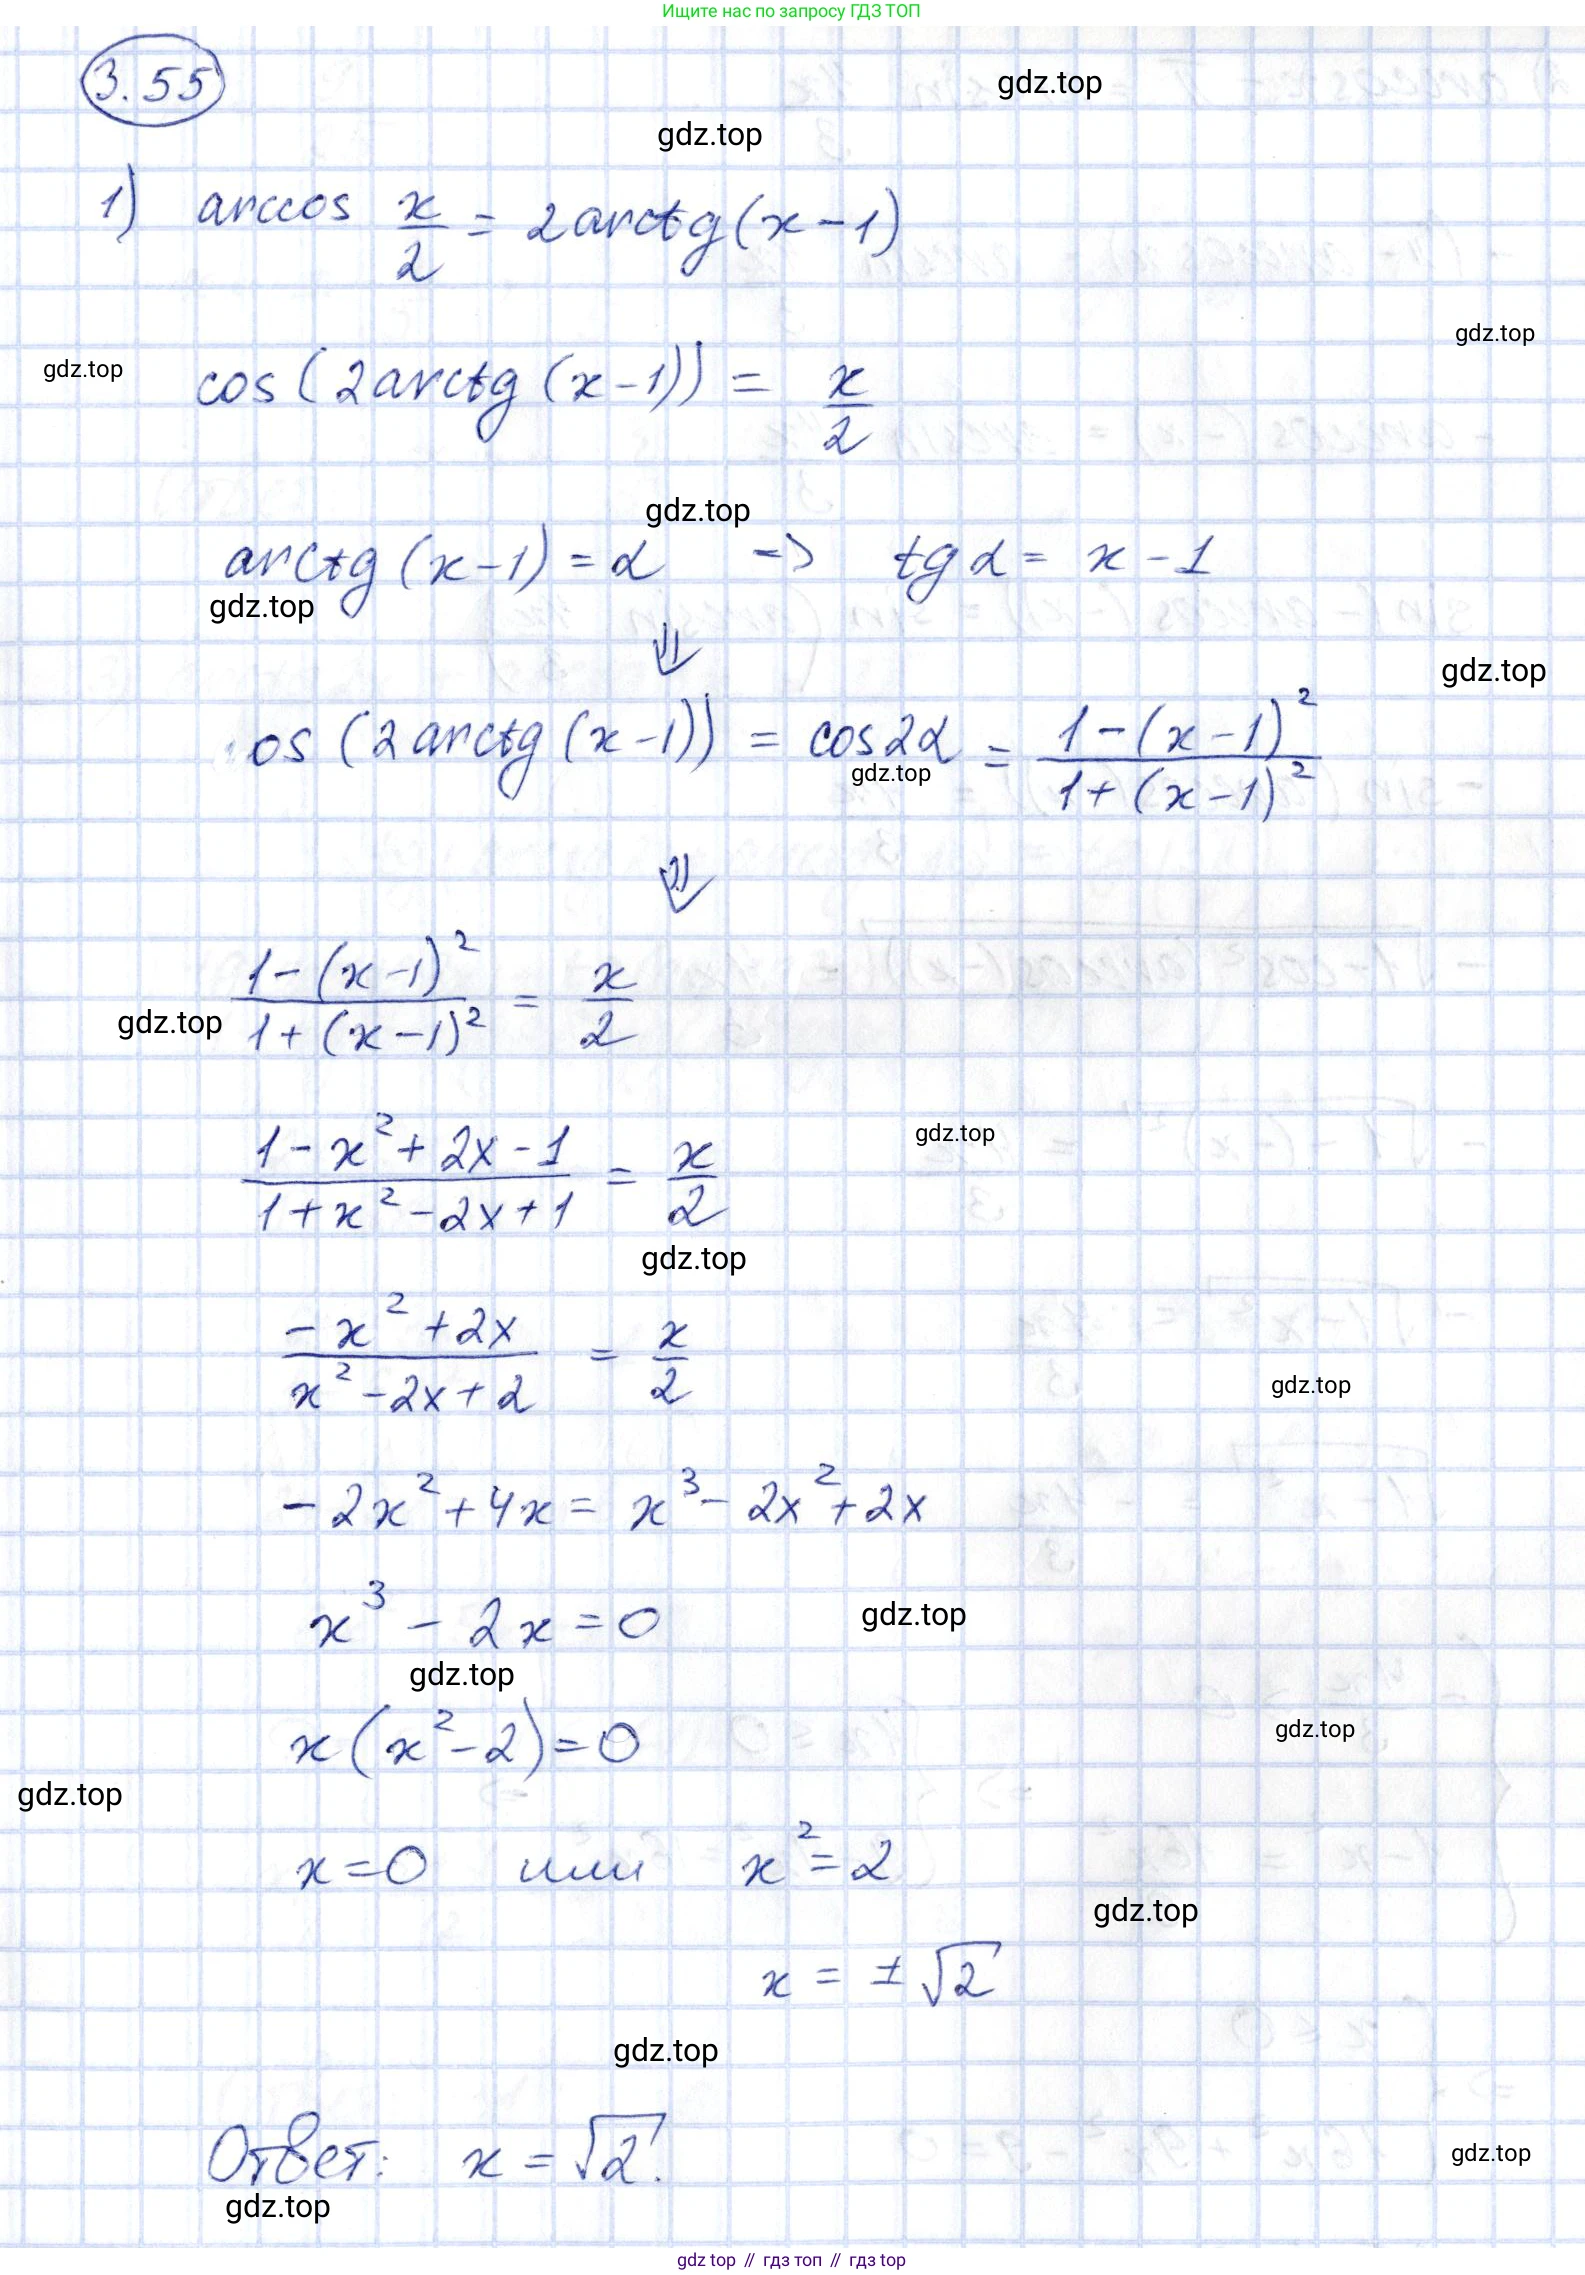 Ищите нас по запросу ГДЗ ТОП
3.55
gdz.top
gdz.top
1) arccos x/2 = 2arctg(x-1)
gdz.top
gdz.top
cos(2arctg(x-1)) = x/2
gdz.top
arctg(x-1) = α => tgα = x-1
gdz.top
⇓
gdz.top
os(2arctg(x-1)) = cos2α = (1-(x-1)²)/(1+(x-1)²)
gdz.top
⇓
(1-(x-1)²)/(1+(x-1)²) = x/2
gdz.top
(1-x²+2x-1)/(1+x²-2x+1) = x/2
gdz.top
gdz.top
(-x²+2x)/(x²-2x+2) = x/2
gdz.top
-2x²+4x = x³-2x²+2x
x³-2x=0
gdz.top
gdz.top
x(x²-2)=0
gdz.top
gdz.top
x=0 или x²=2
gdz.top
x = ±√2
gdz.top
Ответ: x=√2.
gdz.top
gdz.top
gdz top // гдз топ // гдз top